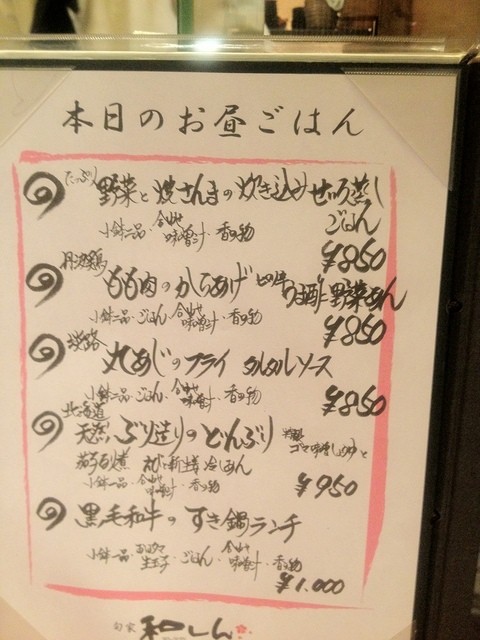 本日のお昼ごはん
たっぷり野菜と焼さんまの炊き込みせいろ蒸し
ごはん
小鉢二品・合わせ味噌汁・香の物
¥850
丹波鶏もも肉のからあげ 野菜あん
小鉢一品・ごはん・合わせ味噌汁・香の物
¥850
淡路 丸あじのフライ タルタルソース
小鉢一品・ごはん・合わせ味噌汁・香の物
¥850
北海道
天然ぶり造りのどんぶり
小鉢一品・合わせ味噌汁・香の物
¥950
黒毛和牛のすき鍋ランチ
小鉢一品・生玉子・ごはん・合わせ味噌汁・香の物
¥1.000
旬家 和しん